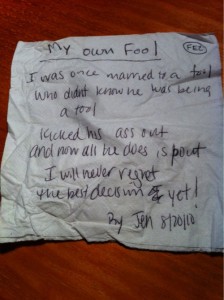 My own Fool
I was once married to a fool
who didnt know he was being
a tool
kicked his ass out
and now all he does is pout
I will never regret
the best decision yet!
By Jen 8/20/10